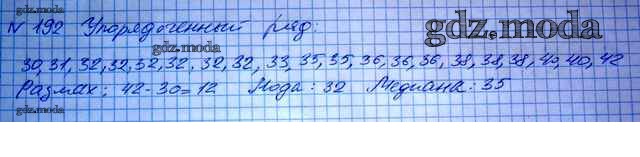 gdz.moda
N 192 Упорядоченный ряд:
gdz.moda
gdz.moda
30, 31, 32, 32, 32, 32, 32, 32, 33, 35, 35, 36, 36, 36, 38, 38, 38, 40, 40, 42
Размах: 42-30=12 Мода: 32 Медиана: 35
gdz.moda